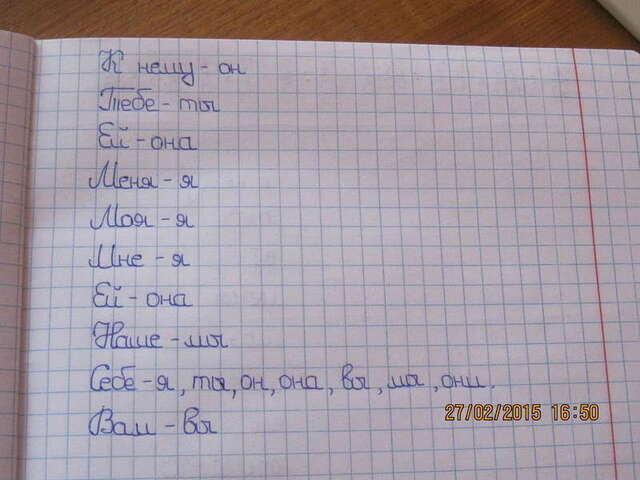 К нему - он
Тебе - ты
Ей - она
Меня - я
Моя - я
Мне - я
Ей - она
Наше - мы
Себе - я, ты, он, она, вы, мы, они.
Вам - вы
27/02/2015 16:50